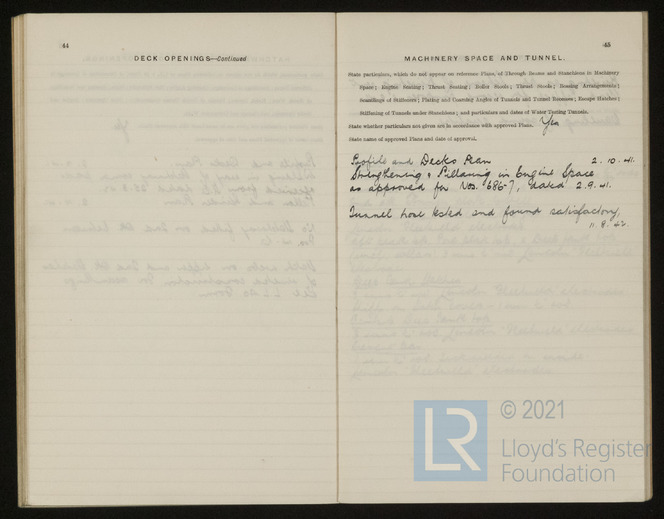 44
DECK OPENINGS—Continued
45
MACHINERY SPACE AND TUNNEL.
State particulars, which do not appear on reference Plans, of Through Beams and Stanchions in Machinery
Space; Engine Seating; Thrust Seating; Boiler Stools; Thrust Stools; Bossing Arrangements;
Scantlings of Stiffeners; Plating and Coaming Angles of Tunnels and Tunnel Recesses; Escape Hatches;
Stiffening of Tunnels under Stanchions; and particulars and dates of Water Testing Tunnels.
State whether particulars not given are in accordance with approved Plans. Yes
State name of approved Plans and date of approval.
Profile and Decks Plan 2.10.41.
Strengthening & Pillaring in Engine Space
as approved for Nos. 686-7, dated 2.9.41.
Tunnel hose tested and found satisfactory,
11.8.42.
LR
© 2021
Lloyd's Register
Foundation